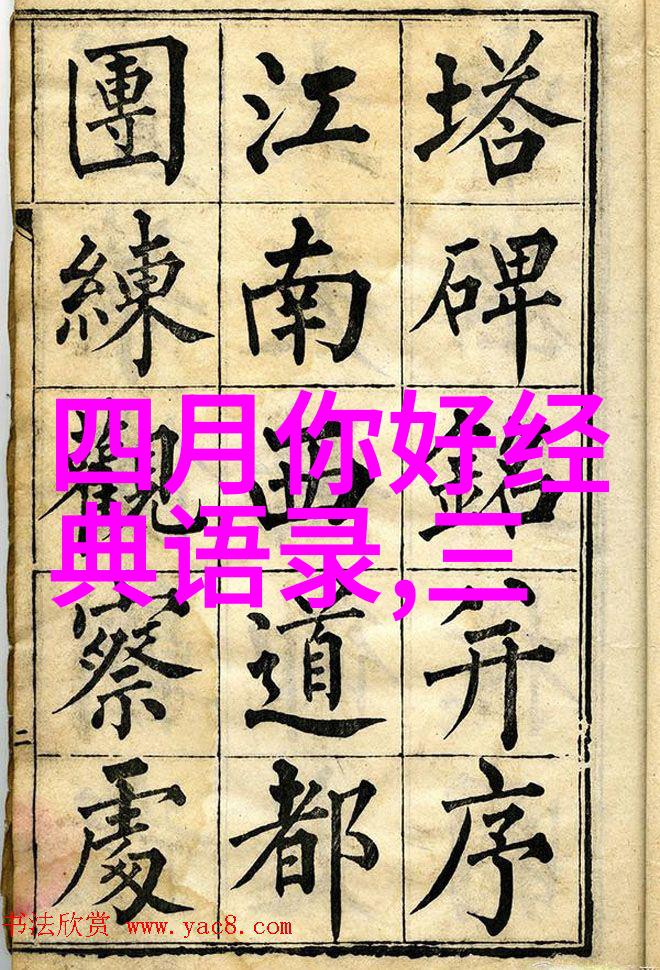 塔碑銘并序
江南西道都
團練觀察處
二
四月你好经
典语录,三
书法欣赏 www.yac8.com